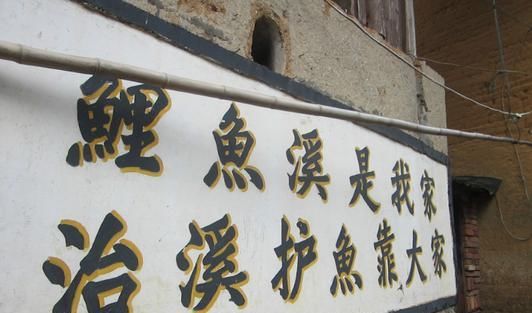 鯉魚溪是我家
治溪护魚靠大家